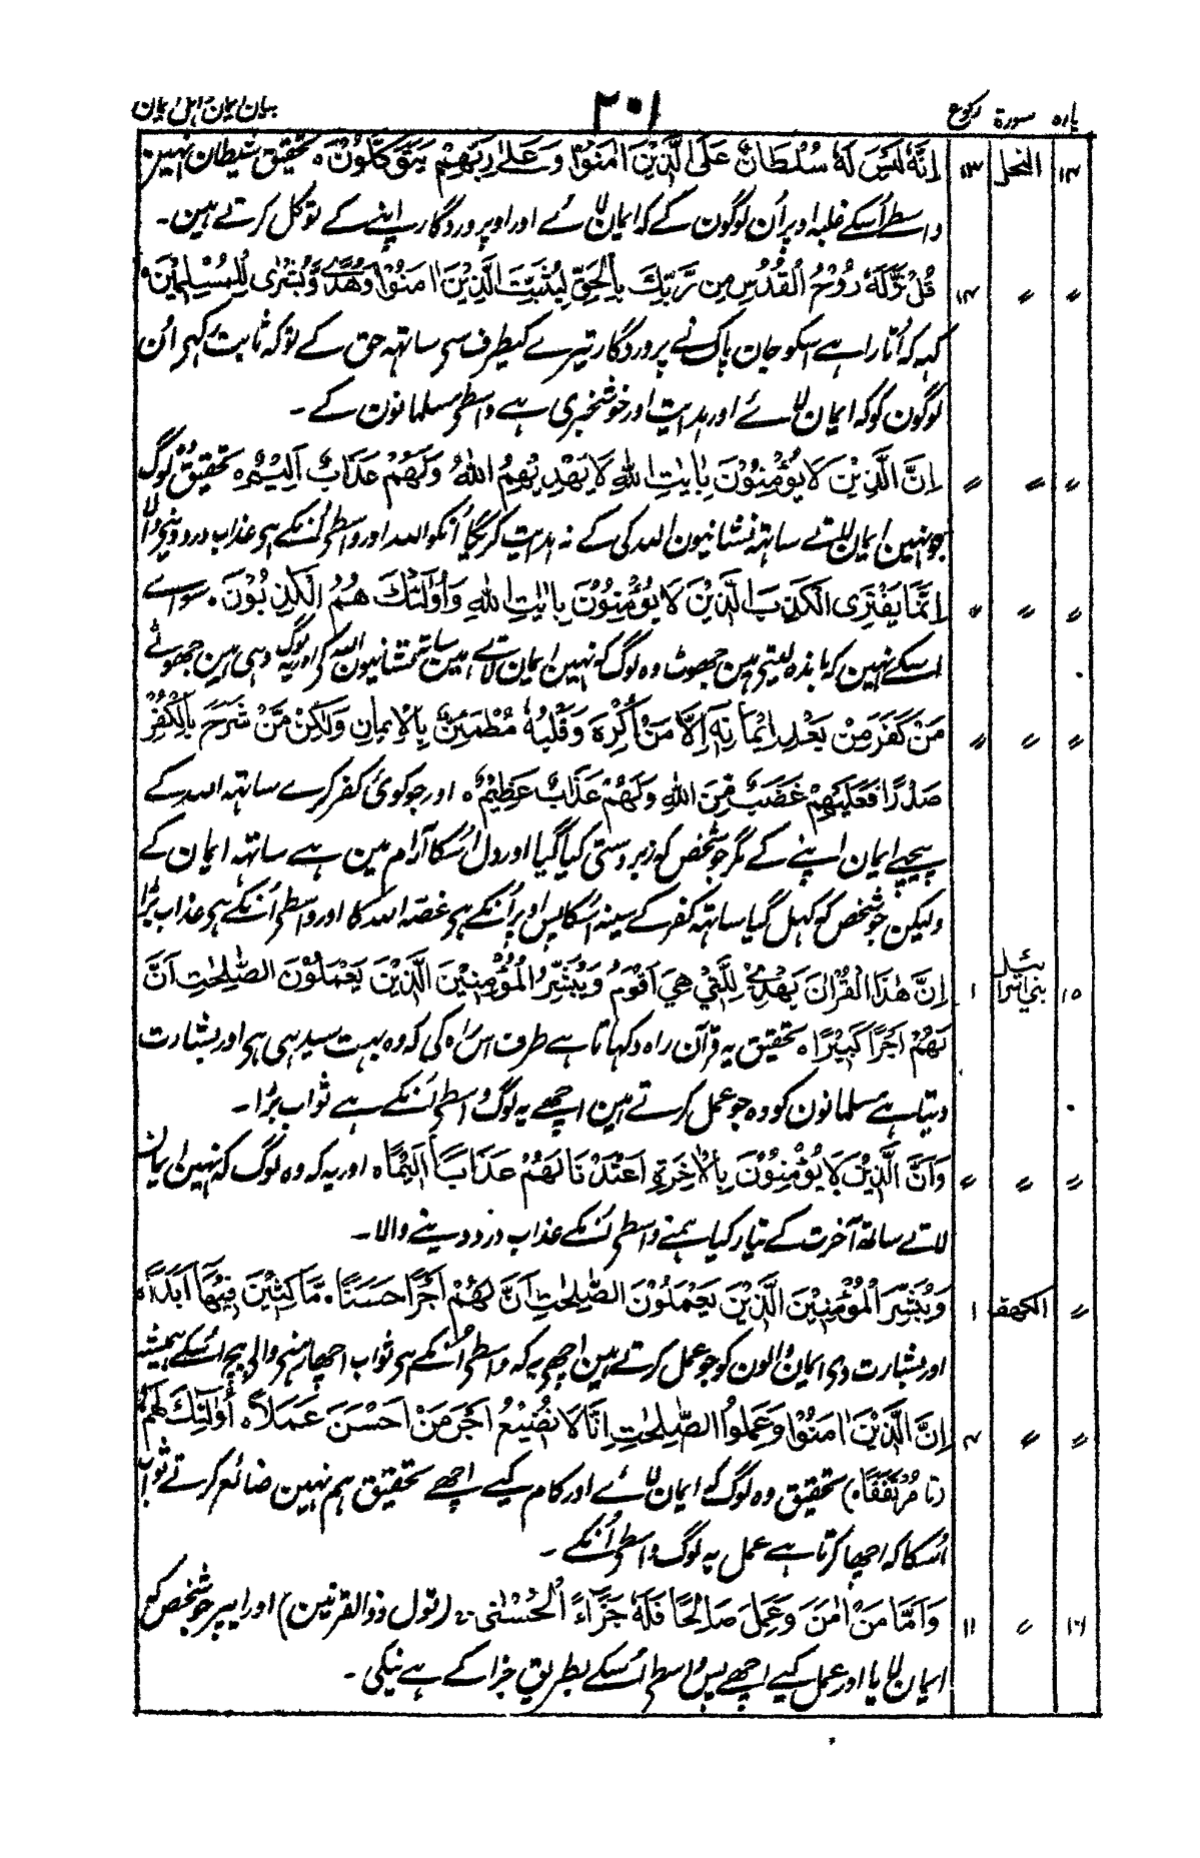 پارہ سورۃ رکوع ۲۰۱ بیان ایمان و اہل ایمان
۱۴ النحل ۱۳ اِنَّهٗ لَيْسَ لَهٗ سُلْطَانٌ عَلَى الَّذِيْنَ اٰمَنُوْا وَعَلٰى رَبِّهِمْ يَتَوَكَّلُوْنَ ہ تحقیق شیطان نہین
واسطے اُسکے غلبہ اوپر اُن لوگون کے کہ ایمان لائے اور اوپر پروردگار اپنے کے توکل کرتے ہین۔
〃 〃 ۱۴ قُلْ نَزَّلَهٗ رُوْحُ الْقُدُسِ مِن رَّبِّكَ بِالْحَقِّ لِيُثَبِّتَ الَّذِيْنَ اٰمَنُوْا وَهُدًى وَّبُشْرٰى لِلْمُسْلِمِيْنَ ہ
کہہ کہ اُتارا ہے اسکو جان پاک نے پروردگار تیرے کیطرف سے ساتھ حق کے توکہ ثابت رکہے اُن
لوگون کو کہ ایمان لائے اور ہدایت اور خوشخبری ہے واسطے مسلمانون کے ۔
〃 〃 〃 اِنَّ الَّذِيْنَ لَا يُؤْمِنُوْنَ بِاٰيٰتِ اللّٰهِ لَا يَهْدِيْهِمُ اللّٰهُ وَلَهُمْ عَذَابٌ اَلِيْمٌ ہ تحقیق وہ لوگ
جو نہین ایمان لاتے ساتھ نشانیون اللہ کی کے نہ ہدایت کریگا اُنکو اللہ اور واسطے اُنکے ہی عذاب درد دینیوالا
〃 〃 〃 اِنَّمَا يَفْتَرِى الْكَذِبَ الَّذِيْنَ لَا يُؤْمِنُوْنَ بِاٰيٰتِ اللّٰهِ وَاُولٰٓئِكَ هُمُ الْكٰذِبُوْنَ ۔ سوائے
اسکے نہین کہ باندہ لیتے ہین جھوٹ وہ لوگ کہ نہین ایمان لاتے ہین ساتھ نشانیون اللہ کی اور یہ لوگ وہی ہین جھوٹے
〃 〃 〃 مَنْ كَفَرَ مِنْ بَعْدِ اِيْمَانِهٖٓ اِلَّا مَنْ اُكْرِهَ وَقَلْبُهٗ مُطْمَئِنٌّ بِالْاِيْمَانِ وَلٰكِنْ مَّنْ شَرَحَ بِالْكُفْرِ
صَدْرًا فَعَلَيْهِمْ غَضَبٌ مِّنَ اللّٰهِ وَلَهُمْ عَذَابٌ عَظِيْمٌ ہ اور جو کوئی کفر کرے ساتھ اللہ کے
پیچھے ایمان اپنے کے مگر جو شخص کہ زبردستی کیا گیا اور دل اُسکا آرام مین ہے ساتھ ایمان کے
ولیکن جو شخص کہ کہل گیا ساتھ کفر کے سینہ اُسکا پس اوپر اُنکے ہی غصہ اللہ کا اور واسطے اُنکے ہی عذاب بڑا
۱۵ بنی اسرائیل ۱ اِنَّ هٰذَا الْقُرْاٰنَ يَهْدِيْ لِلَّتِيْ هِيَ اَقْوَمُ وَيُبَشِّرُ الْمُؤْمِنِيْنَ الَّذِيْنَ يَعْمَلُوْنَ الصّٰلِحٰتِ اَنَّ
لَهُمْ اَجْرًا كَبِيْرًا ہ تحقیق یہ قرآن راہ دکہاتا ہے طرف اس راہ کی کہ وہ بہت سیدہی ہی اور بشارت
دیتا ہے مسلمانون کو وہ جو عمل کرتے ہین اچھے یہ لوگ واسطے اُنکے ہے ثواب بڑا ۔
〃 〃 〃 وَاَنَّ الَّذِيْنَ لَا يُؤْمِنُوْنَ بِالْاٰخِرَةِ اَعْتَدْنَا لَهُمْ عَذَابًا اَلِيْمًا ہ اور یہ کہ وہ لوگ کہ نہین ایمان
لاتے ساتھ آخرت کے تیار کیا ہمنے واسطے اُنکے عذاب درد دینے والا ۔
〃 الکھف ۱ وَيُبَشِّرَ الْمُؤْمِنِيْنَ الَّذِيْنَ يَعْمَلُوْنَ الصّٰلِحٰتِ اَنَّ لَهُمْ اَجْرًا حَسَنًا ۔ مَّاكِثِيْنَ فِيْهَا اَبَدًا ہ
اور بشارت دی ایمان والون کو جو عمل کرتے ہین اچھے یہ کہ واسطے اُنکے ہی ثواب اچھا رہنے والی بیچ اُسکے ہمیشہ
〃 〃 ۴ اِنَّ الَّذِيْنَ اٰمَنُوْا وَعَمِلُوا الصّٰلِحٰتِ اِنَّا لَا نُضِيْعُ اَجْرَ مَنْ اَحْسَنَ عَمَلًا ہ اُولٰٓئِكَ لَهُمْ
(تا مُرْتَفَقًا) تحقیق وہ لوگ کہ ایمان لائے اور کام کیے اچھے تحقیق ہم نہین ضائع کرتے ثواب
اُسکا کہ اچھا کرتا ہے عمل یہ لوگ واسطے اُنکے ۔
۱۶ 〃 ۱۱ وَاَمَّا مَنْ اٰمَنَ وَعَمِلَ صَالِحًا فَلَهٗ جَزَآءً الْحُسْنٰى ۔ (قول ذوالقرنین) اور ایپر جو شخص کہ
ایمان لایا اور عمل کیے اچھے پس واسطے اُسکے بطریق جزا کے ہے نیکی ۔